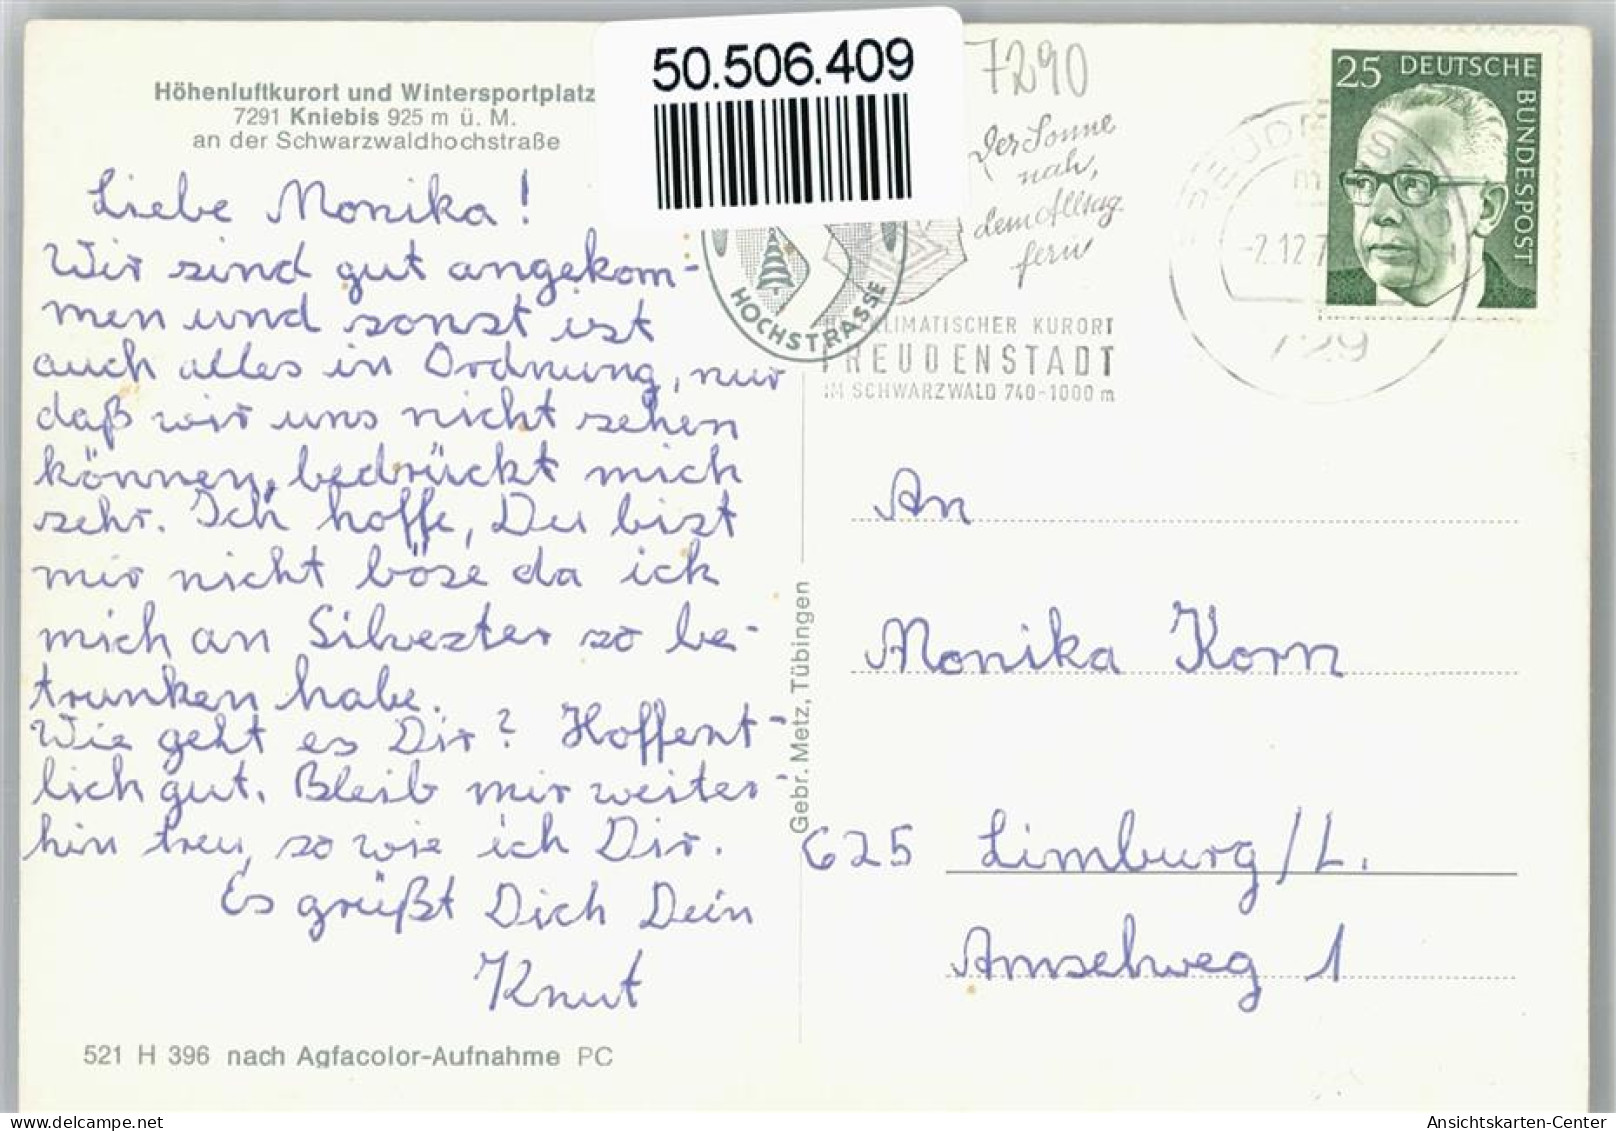 50.506.409
Höhenluftkurort und Wintersportplatz
7291 Kniebis 925 m ü. M.
an der Schwarzwaldhochstraße
Liebe Monika!
Wir sind gut angekom-
men und sonst ist
auch alles in Ordnung, nur
daß wir uns nicht sehen
können, bedrückt mich
sehr. Ich hoffe, Du bist
mir nicht böse da ich
mich an Silvester so be-
trunken habe.
Wie geht es Dir? Hoffent-
lich gut. Bleib mir weiter-
hin treu, so wie ich Dir.
Es grüßt Dich Dein
Knut
521 H 396 nach Agfacolor-Aufnahme PC
Gebr. Metz, Tübingen
HOCHSTRASSE
7290
Der Sonne
nah,
dem Alltag
fern
KLIMATISCHER KURORT
FREUDENSTADT
IM SCHWARZWALD 740-1000 m
-2.12.7
729
25 DEUTSCHE
BUNDESPOST
An
Monika Korn
625 Limburg/L.
Amselweg 1
Ansichtskarten-Center